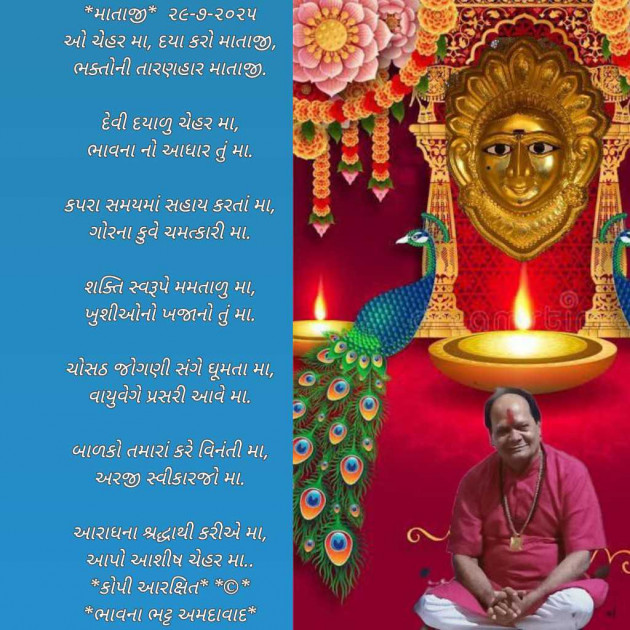 *માતાજી* ૨૯-૭-૨૦૨૫
ઓ ચેહર મા, દયા કરો માતાજી,
ભક્તોની તારણહાર માતાજી.
દેવી દયાળુ ચેહર મા,
ભાવના નો આધાર તું મા.
કપરા સમયમાં સહાય કરતાં મા,
ગોરના કુવે ચમત્કારી મા.
શક્તિ સ્વરૂપે મમતાળુ મા,
ખુશીઓનો ખજાનો તું મા.
ચોસઠ જોગણી સંગે ઘૂમતા મા,
વાયુવેગે પ્રસરી આવે મા.
બાળકો તમારાં કરે વિનંતી મા,
અરજી સ્વીકારજો મા.
આરાધના શ્રદ્ધાથી કરીએ મા,
આપો આશીષ ચેહર મા..
*કોપી આરક્ષિત* *©*
*ભાવના ભટ્ટ અમદાવાદ*